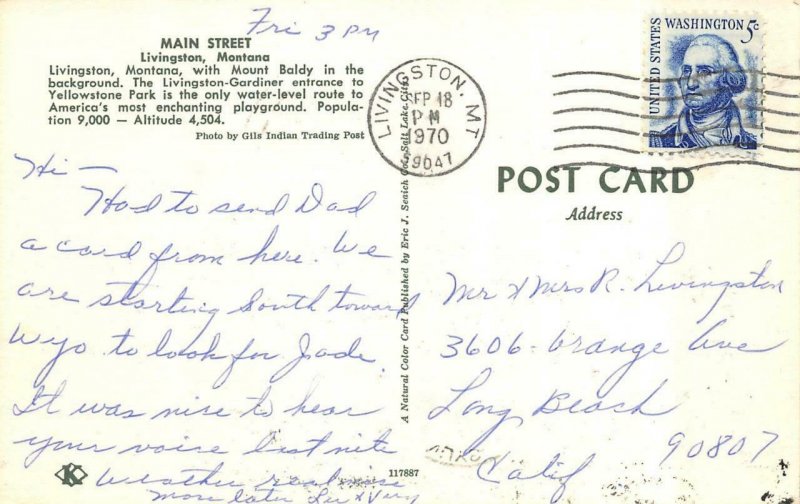 Fri 3 PM
MAIN STREET
Livingston, Montana
Livingston, Montana, with Mount Baldy in the
background. The Livingston-Gardiner entrance to
Yellowstone Park is the only water-level route to
America's most enchanting playground. Popula-
tion 9,000 — Altitude 4,504.
Photo by Gils Indian Trading Post
Hi —
Had to send Dad
a card from here. We
are starting South toward
Wyo to look for Jade.
It was nice to hear
your voice last nite
Weather real nice
more later Lee & Very
K
117887
A Natural Color Card Published by Eric J. Seaich Co., Salt Lake City
LIVINGSTON, MT
SEP 18
PM
1970
59047
UNITED STATES
WASHINGTON 5c
POST CARD
Address
Mr & Mrs R. Livingston
3606 Orange Ave
Long Beach
90807
Calif